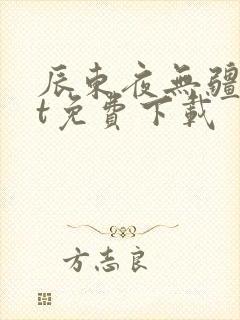 辰东夜無疆
t免費下載
方志良